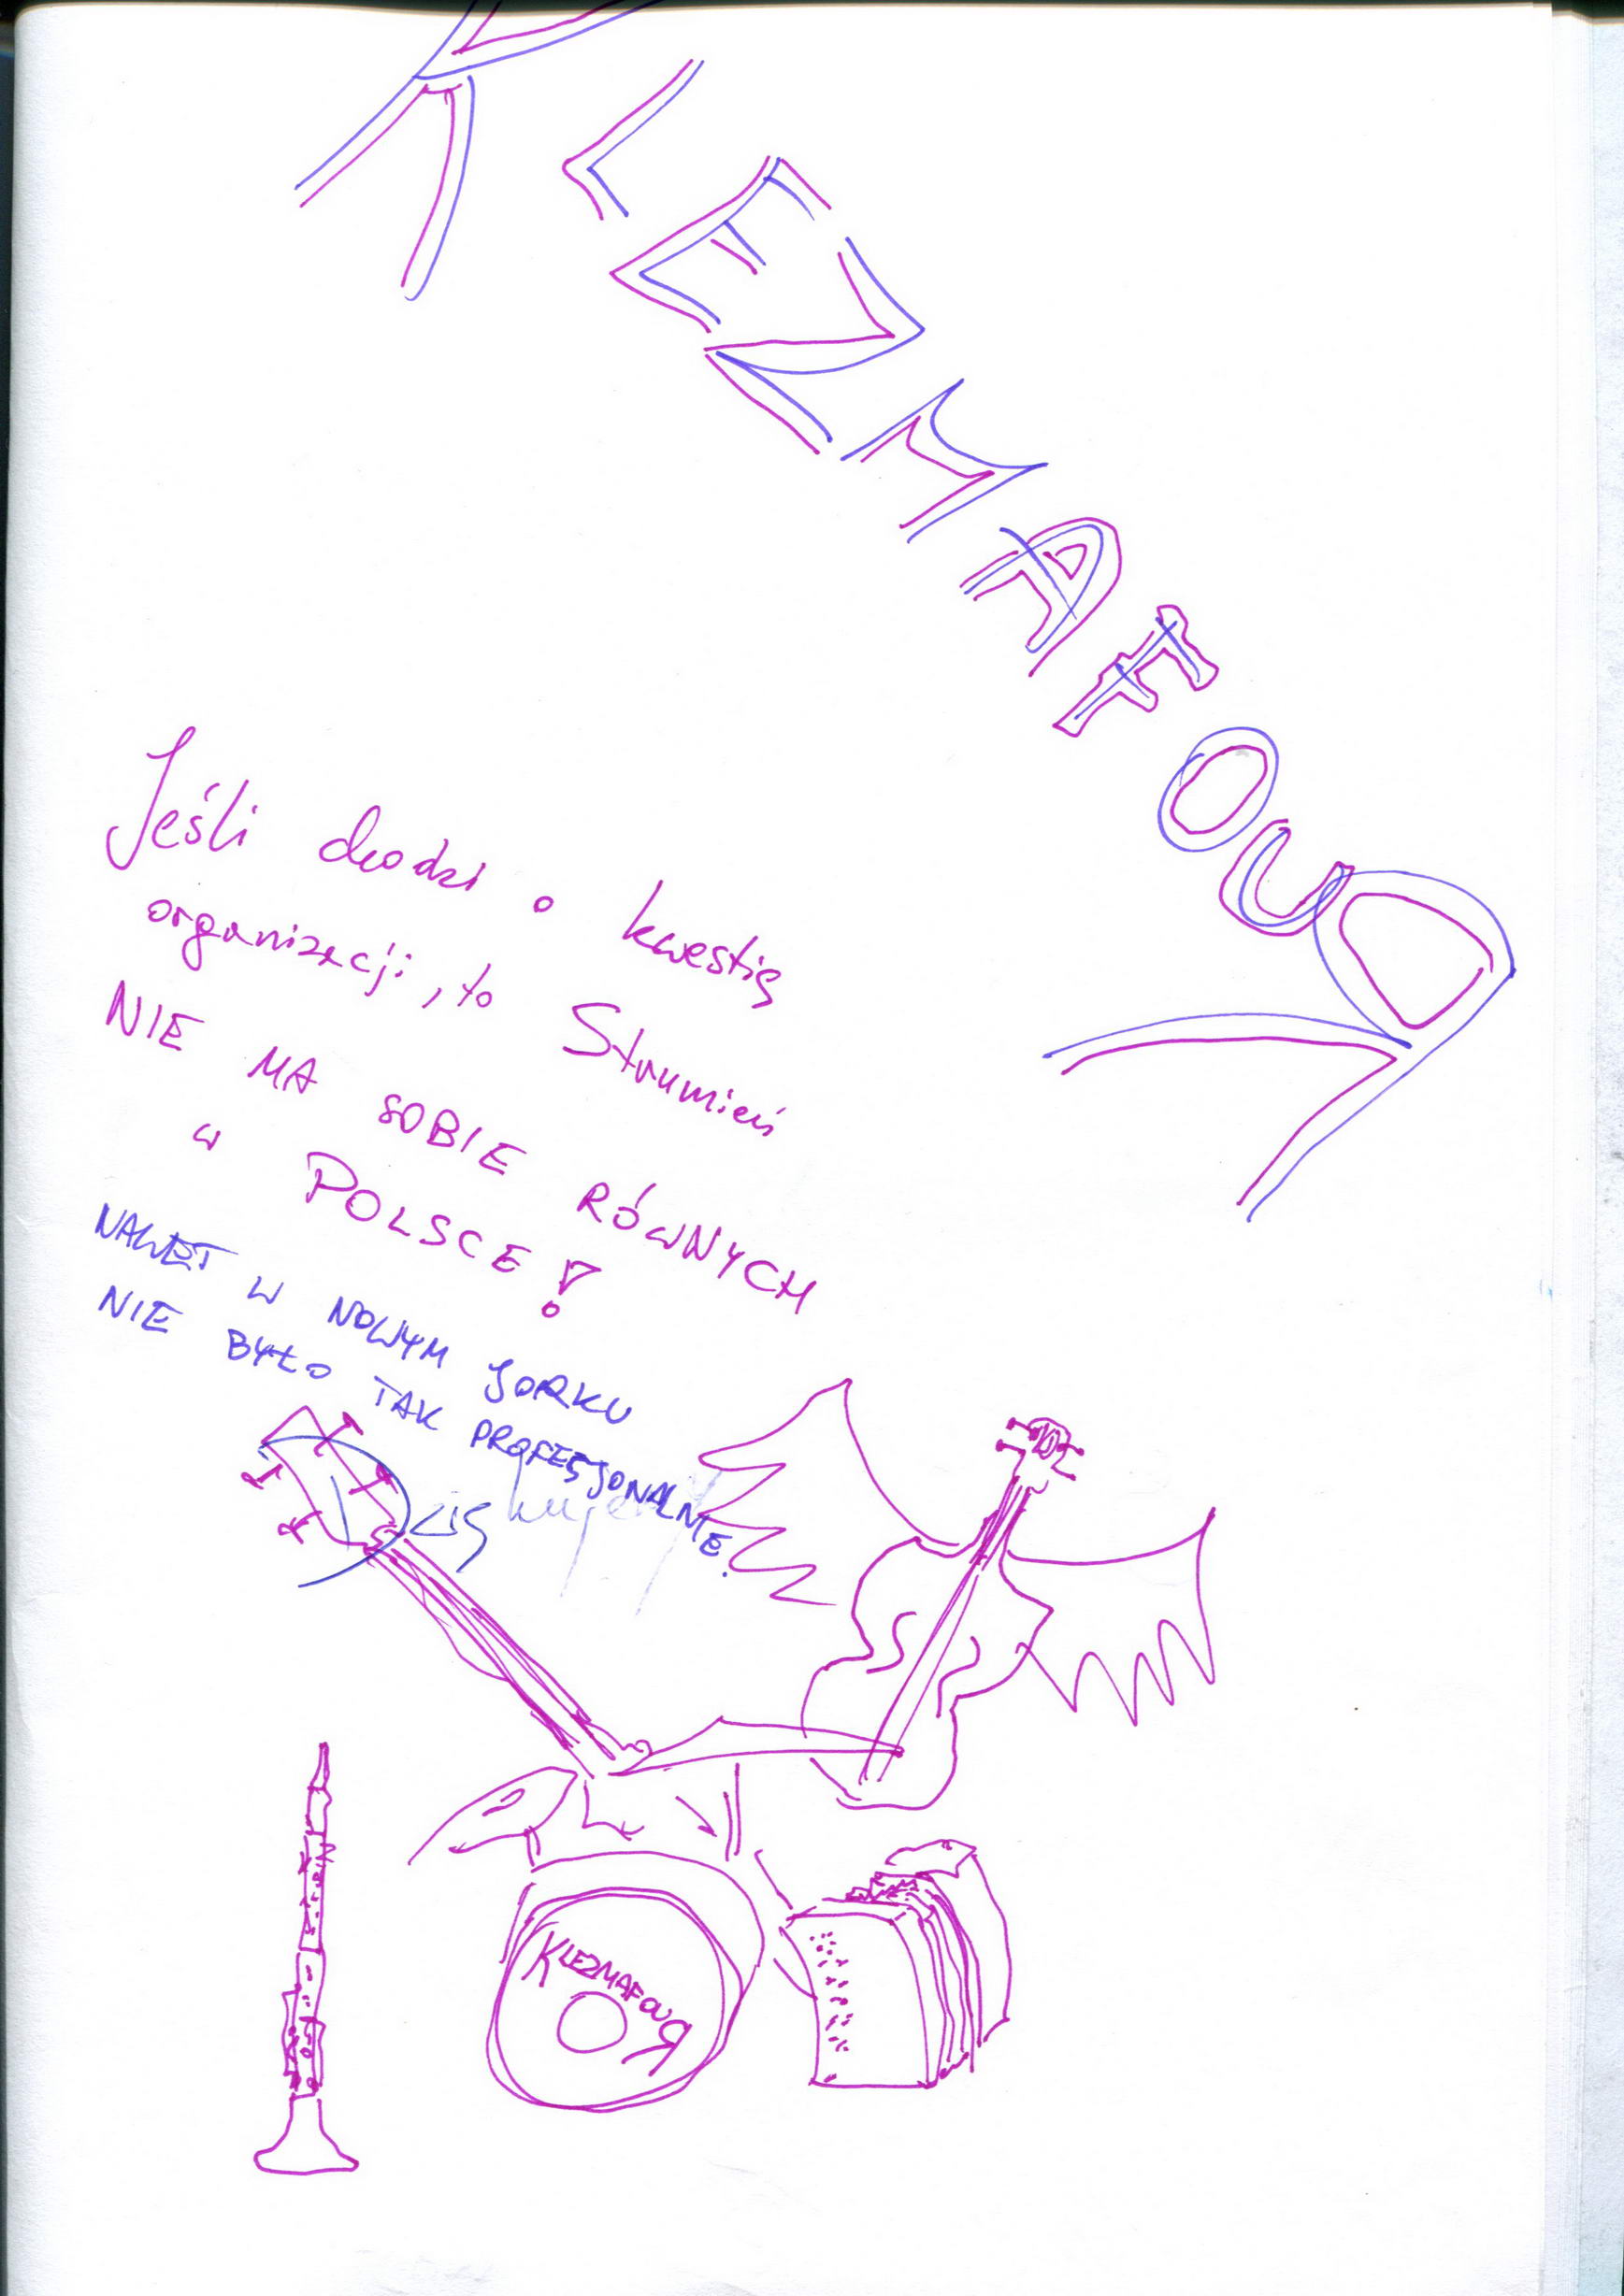 KLEZMAFOUR
Jeśli chodzi o kwestię
organizacji, to Strumień
NIE MA SOBIE RÓWNYCH
w POLSCE!
NAWET W NOWYM JORKU
NIE BYŁO TAK PROFESJONALNIE.
Dziękujemy
KLEZMAFOUR